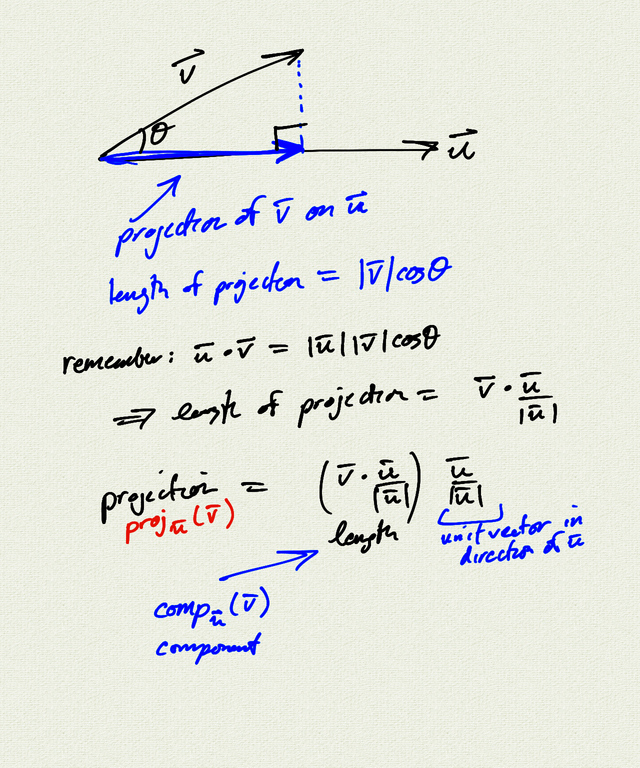 v⃗
θ
u⃗
projection of v̄ on ū
length of projection = |v̄| cosθ
remember: ū · v̄ = |ū| |v̄| cosθ
⟹ length of projection = v̄ · ū/|ū|
projection = (v̄ · ū/|ū|) ū/|ū|
proj_ū(v̄)
length
unit vector in
direction of ū
comp_ū(v̄)
component